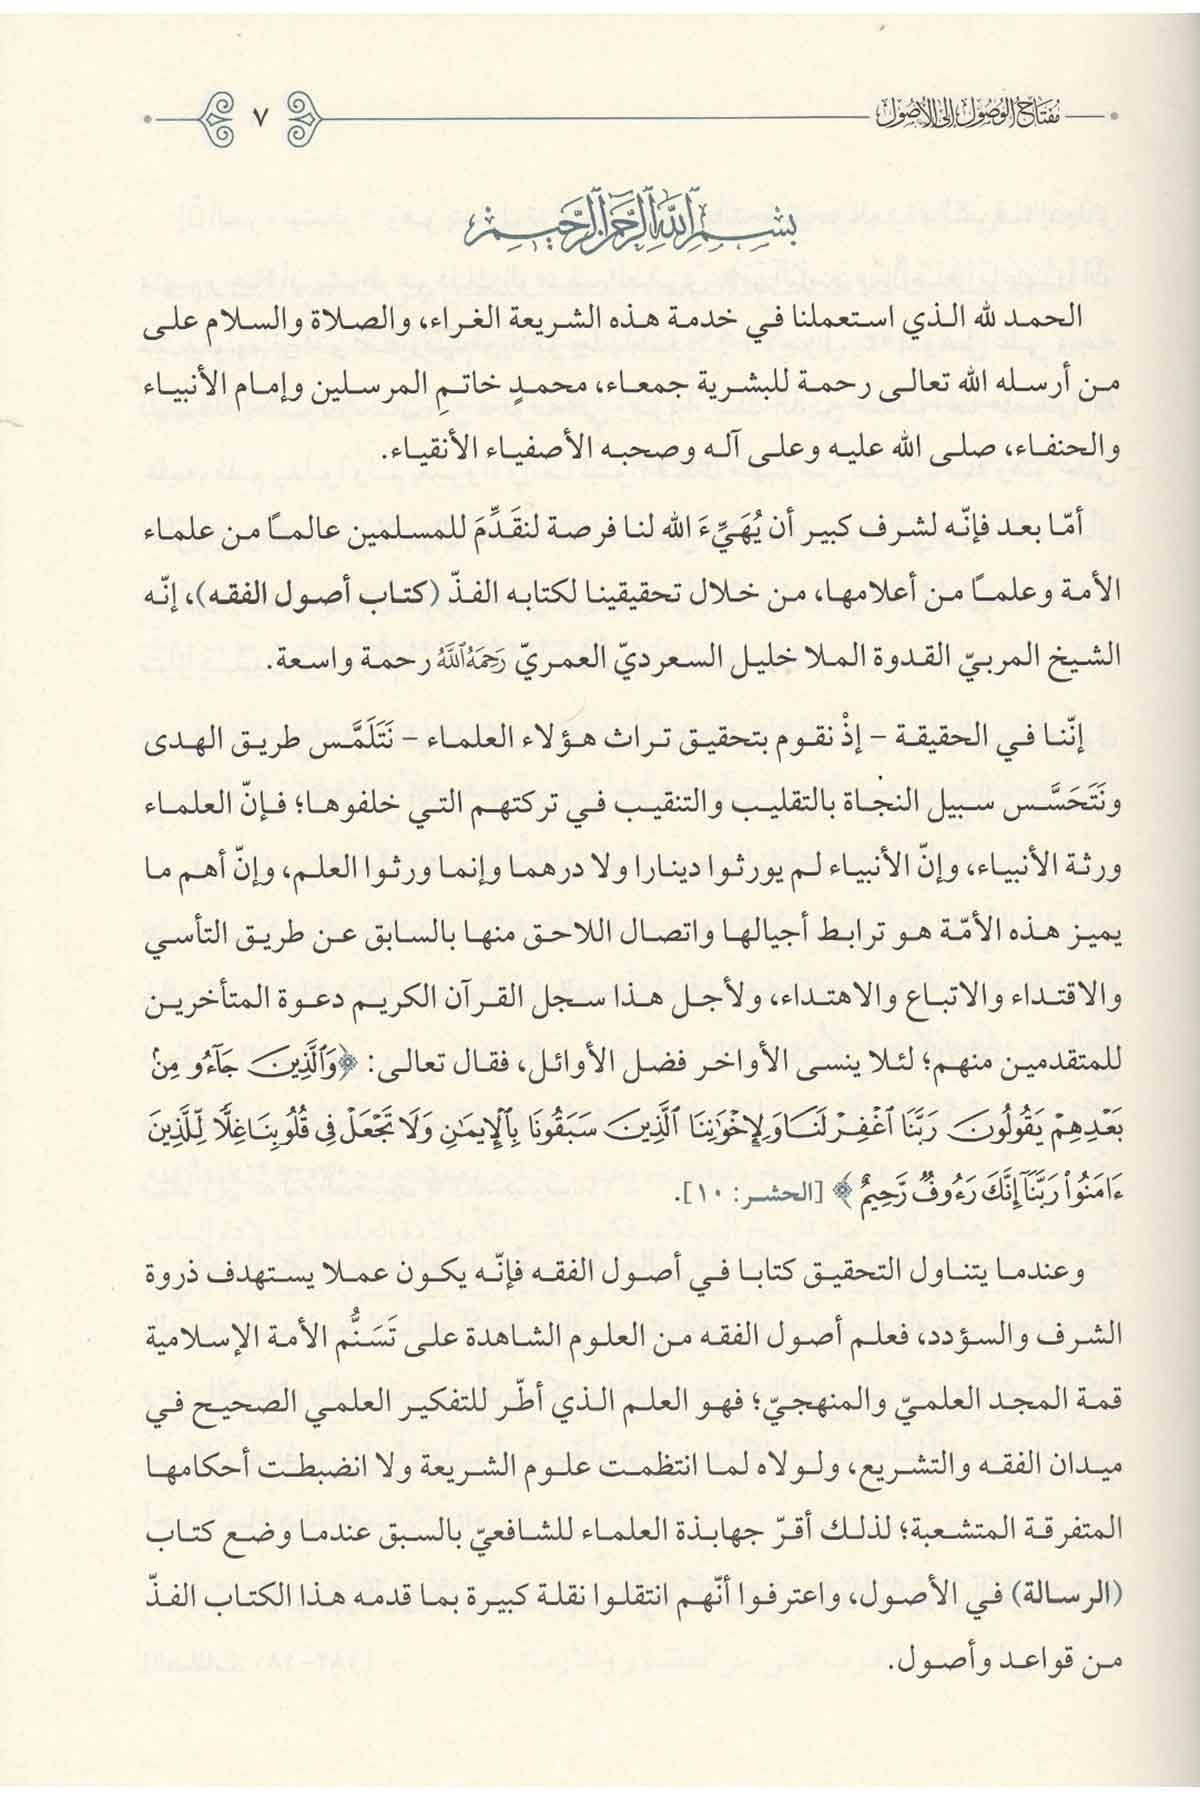 مفتاح الوصول إلى الأصول
٧
بسم الله الرحمن الرحيم
الحمد لله الذي استعملنا في خدمة هذه الشريعة الغراء، والصلاة والسلام على
من أرسله الله تعالى رحمة للبشرية جمعاء، محمدٍ خاتمِ المرسلين وإمام الأنبياء
والحنفاء، صلى الله عليه وعلى آله وصحبه الأصفياء الأنقياء.
أمّا بعد فإنّه لشرف كبير أن يُهَيِّءَ الله لنا فرصة لنقَدِّمَ للمسلمين عالمـًا من علماء
الأمة وعلمـًا من أعلامها، من خلال تحقيقينا لكتابه الفذّ (كتاب أصول الفقه)، إنّه
الشيخ المربيّ القدوة الملا خليل السعرديّ العمريّ رَحِمَهُ ٱللَّهُ رحمة واسعة.
إنّنا في الحقيقة – إذْ نقوم بتحقيق تراث هؤلاء العلماء – نَتَلَمَّس طريق الهدى
ونَتَحَسَّس سبيل النجاة بالتقليب والتنقيب في تركتهم التي خلفوها؛ فإنّ العلماء
ورثة الأنبياء، وإنّ الأنبياء لم يورثوا دينارا ولا درهما وإنما ورثوا العلم، وإنّ أهم ما
يميز هذه الأمّة هو ترابط أجيالها واتصال اللاحق منها بالسابق عن طريق التأسي
والاقتداء والاتباع والاهتداء، ولأجل هذا سجل القرآن الكريم دعوة المتأخرين
للمتقدمين منهم؛ لئلا ينسى الأواخر فضل الأوائل، فقال تعالى: ﴿وَٱلَّذِينَ جَآءُو مِنۢ
بَعْدِهِمْ يَقُولُونَ رَبَّنَا ٱغْفِرْ لَنَا وَلِإِخْوَٰنِنَا ٱلَّذِينَ سَبَقُونَا بِٱلْإِيمَٰنِ وَلَا تَجْعَلْ فِى قُلُوبِنَا غِلًّا لِّلَّذِينَ
ءَامَنُوا۟ رَبَّنَآ إِنَّكَ رَءُوفٌ رَّحِيمٌ﴾ [الحشر: ١٠].
وعندما يتناول التحقيق كتابا في أصول الفقه فإنّه يكون عملا يستهدف ذروة
الشرف والسؤدد، فعلم أصول الفقه من العلوم الشاهدة على تَسَنُّم الأمة الإسلامية
قمة المجد العلميّ والمنهجيّ؛ فهو العلم الذي أطّر للتفكير العلمي الصحيح في
ميدان الفقه والتشريع، ولولاه لما انتظمت علوم الشريعة ولا انضبطت أحكامها
المتفرقة المتشعبة؛ لذلك أقرّ جهابذة العلماء للشافعيّ بالسبق عندما وضع كتاب
(الرسالة) في الأصول، واعترفوا أنّهم انتقلوا نقلة كبيرة بما قدمه هذا الكتاب الفذّ
من قواعد وأصول.